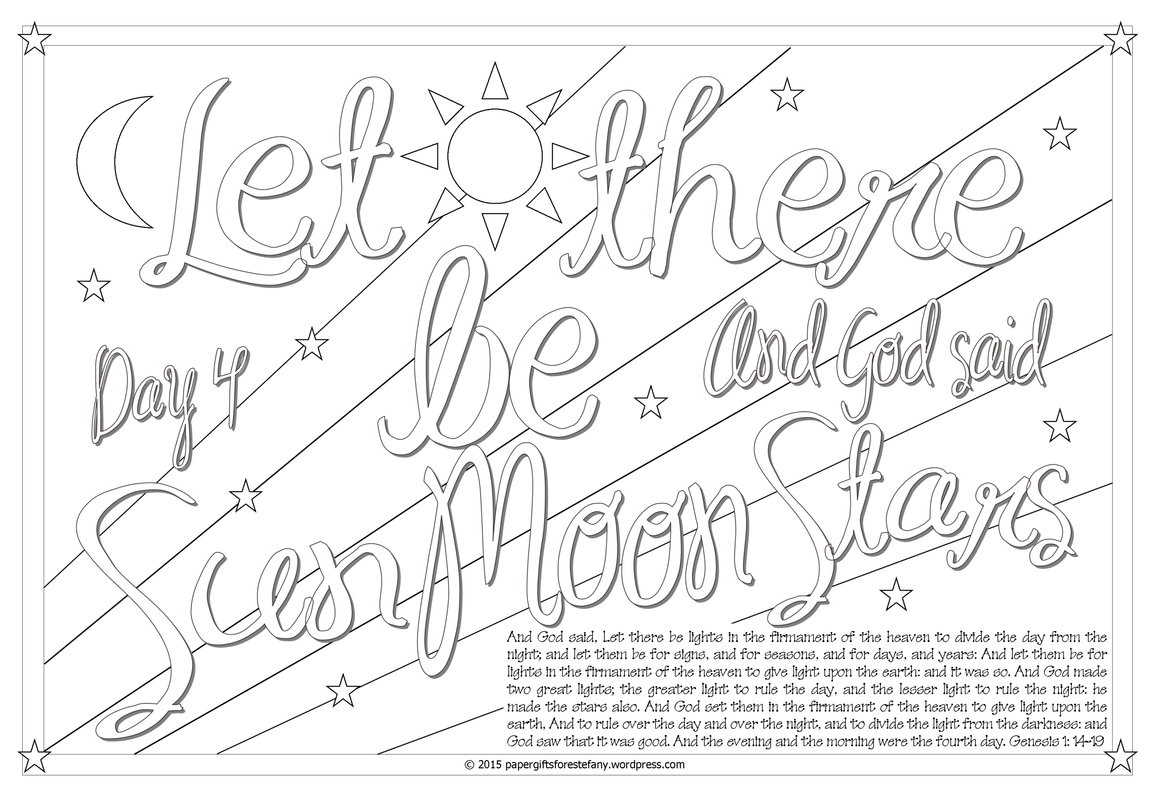 Let there
be
And God said
Day 4
Sun Moon Stars
And God said, Let there be lights in the firmament of the heaven to divide the day from the
night; and let them be for signs, and for seasons, and for days, and years: And let them be for
lights in the firmament of the heaven to give light upon the earth: and it was so. And God made
two great lights; the greater light to rule the day, and the lesser light to rule the night: he
made the stars also. And God set them in the firmament of the heaven to give light upon the
earth, And to rule over the day and over the night, and to divide the light from the darkness: and
God saw that it was good. And the evening and the morning were the fourth day. Genesis 1: 14-19
© 2015 papergiftsforestefany.wordpress.com